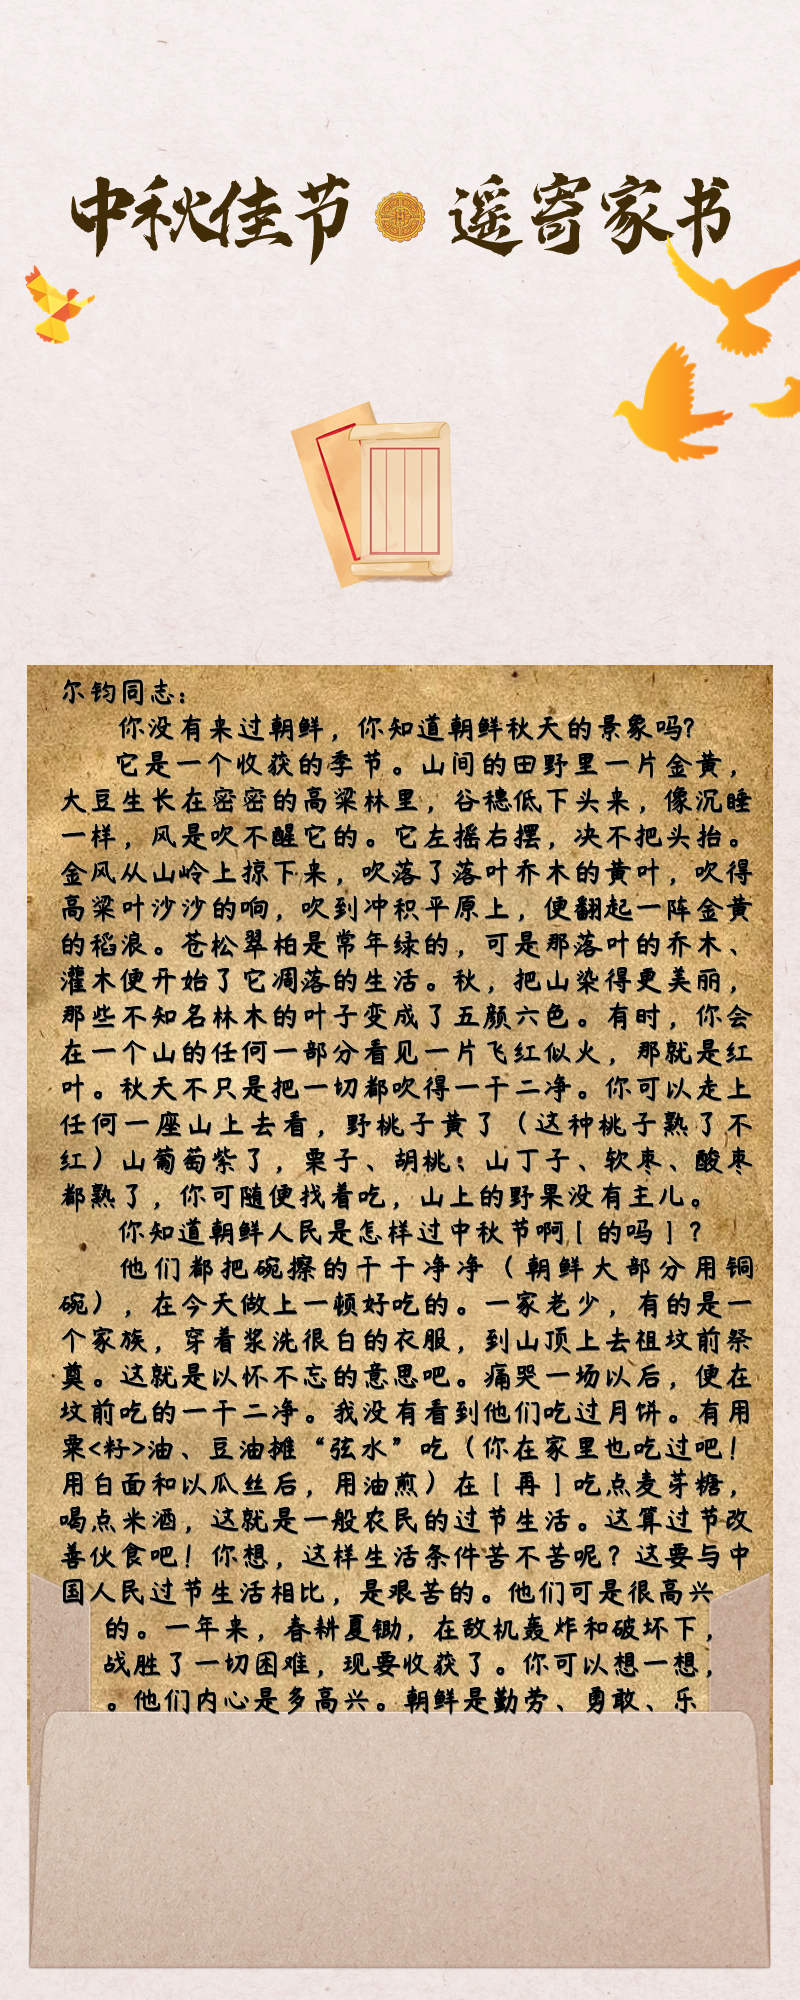 中秋佳节 遥寄家书
尔钧同志：
你没有来过朝鲜，你知道朝鲜秋天的景象吗？
它是一个收获的季节。山间的田野里一片金黄，
大豆生长在密密的高粱林里，谷穗低下头来，像沉睡
一样，风是吹不醒它的。它左摇右摆，决不把头抬。
金风从山岭上掠下来，吹落了落叶乔木的黄叶，吹得
高粱叶沙沙的响，吹到冲积平原上，便翻起一阵金黄
的稻浪。苍松翠柏是常年绿的，可是那落叶的乔木、
灌木便开始了它凋落的生活。秋，把山染得更美丽，
那些不知名林木的叶子变成了五颜六色。有时，你会
在一个山的任何一部分看见一片飞红似火，那就是红
叶。秋天不只是把一切都吹得一干二净。你可以走上
任何一座山上去看，野桃子黄了（这种桃子熟了不
红）山葡萄紫了，栗子、胡桃；山丁子、软枣、酸枣
都熟了，你可随便找着吃，山上的野果没有主儿。
你知道朝鲜人民是怎样过中秋节啊［的吗］？
他们都把碗擦的干干净净（朝鲜大部分用铜
碗），在今天做上一顿好吃的。一家老少，有的是一
个家族，穿着浆洗很白的衣服，到山顶上去祖坟前祭
奠。这就是以怀不忘的意思吧。痛哭一场以后，便在
坟前吃的一干二净。我没有看到他们吃过月饼。有用
粟<籽>油、豆油摊“弦水”吃（你在家里也吃过吧！
用白面和以瓜丝后，用油煎）在［再］吃点麦芽糖，
喝点米酒，这就是一般农民的过节生活。这算过节改
善伙食吧！你想，这样生活条件苦不苦呢？这要与中
国人民过节生活相比，是艰苦的。他们可是很高兴
的。一年来，春耕夏锄，在敌机轰炸和破坏下，
战胜了一切困难，现要收获了。你可以想一想，
。他们内心是多高兴。朝鲜是勤劳、勇敢、乐